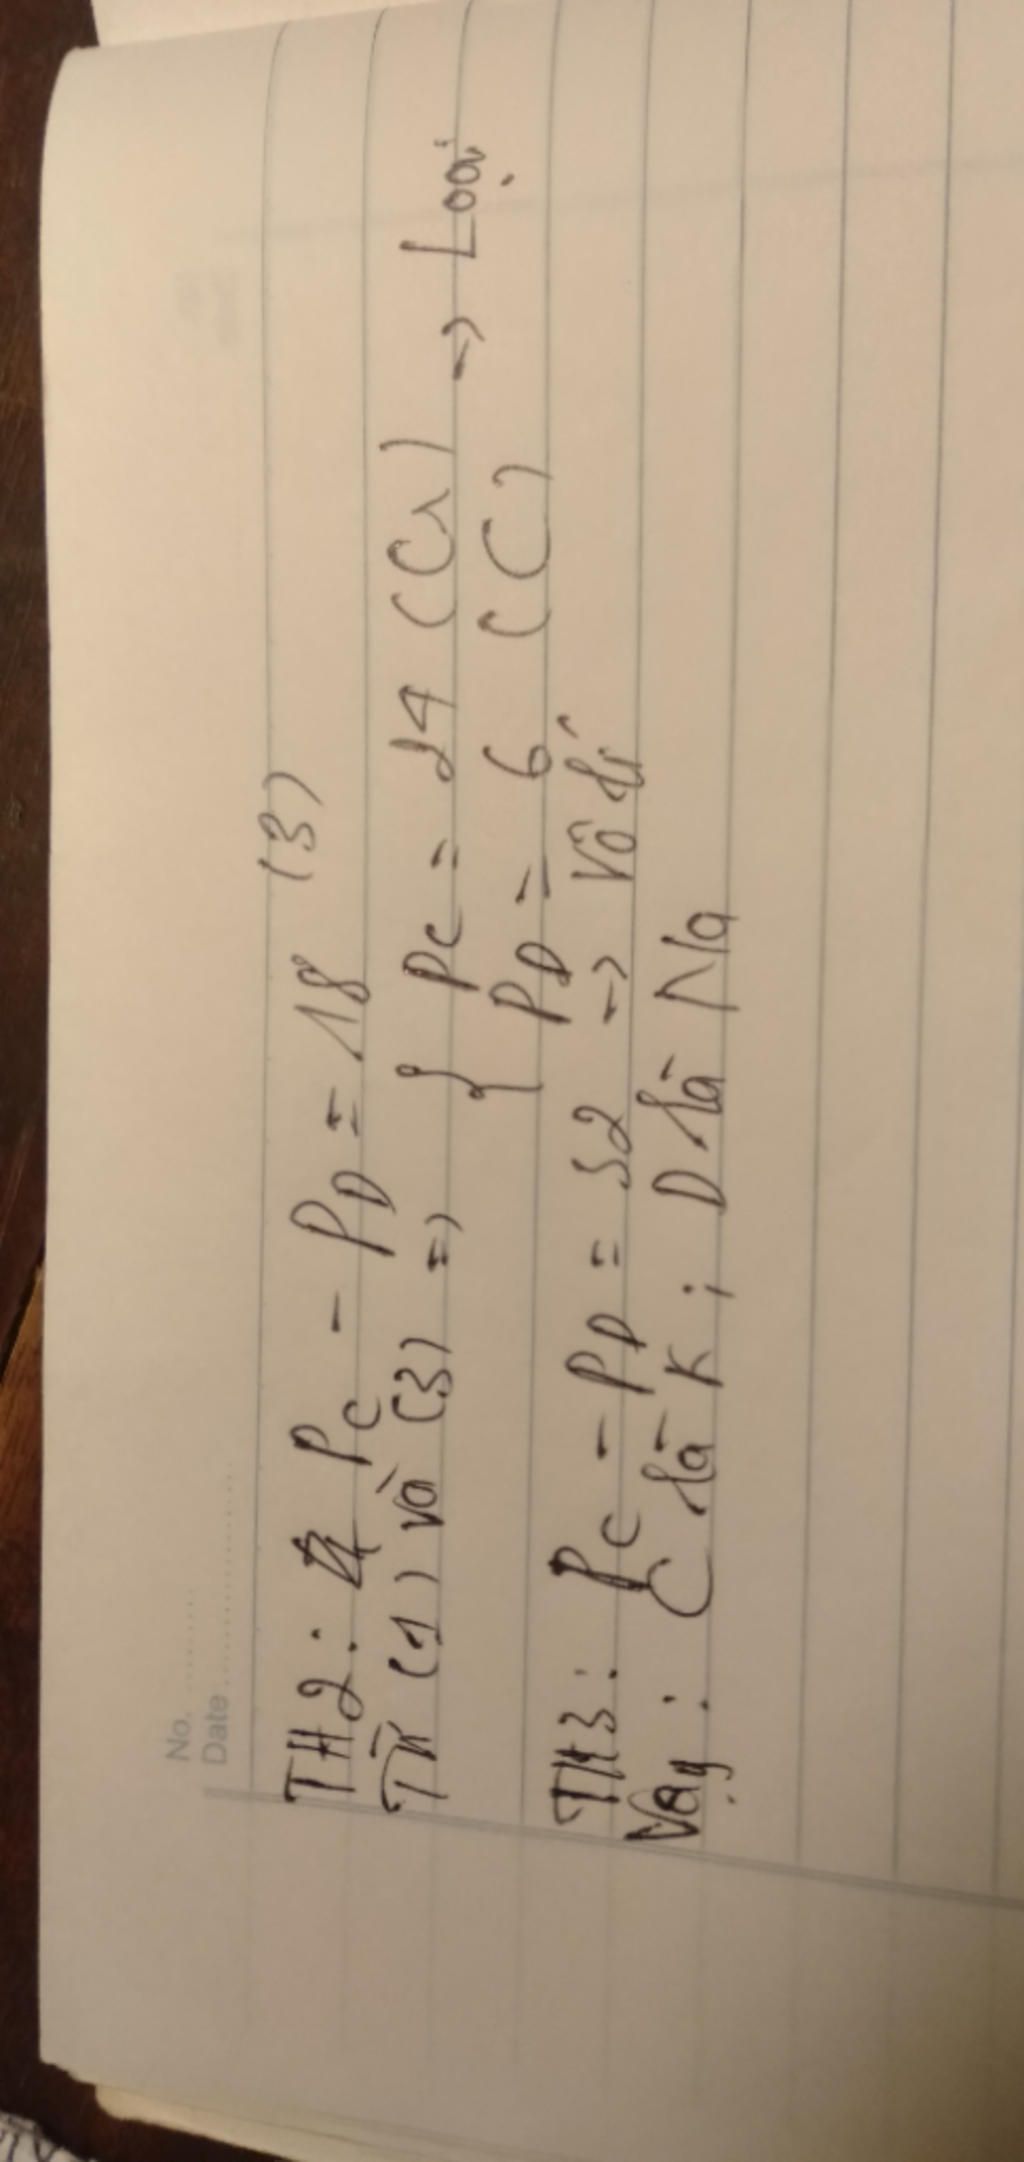 No. ..........
Date ....................
TH2: Pc - PD = 18 (3)
Từ (1) và (3) => { Pc = 24 (Cr) -> Loại
PD = 6 (C)
TH3: Pc - PD = 32 -> Vô lí
Vậy: C là K; D là Na